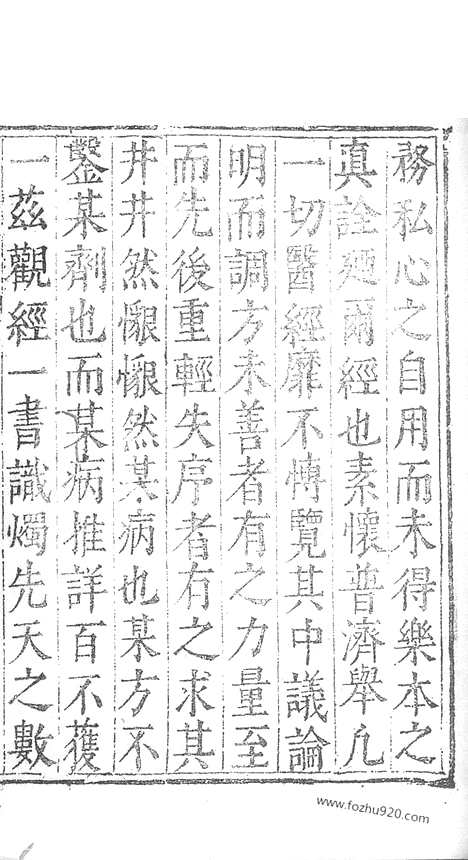 務私心之自用而未得樂本之
真詮廼爾經也素懷普濟舉凡
一切醫經靡不博覽其中議論
明而調方未善者有之力量至
而先後重輕失序者有之求其
井井然懇懇然某病也某方不
鑿某劑也而某病推詳百不獲
一茲觀經一書識燭先天之數
www.fozhu920.com